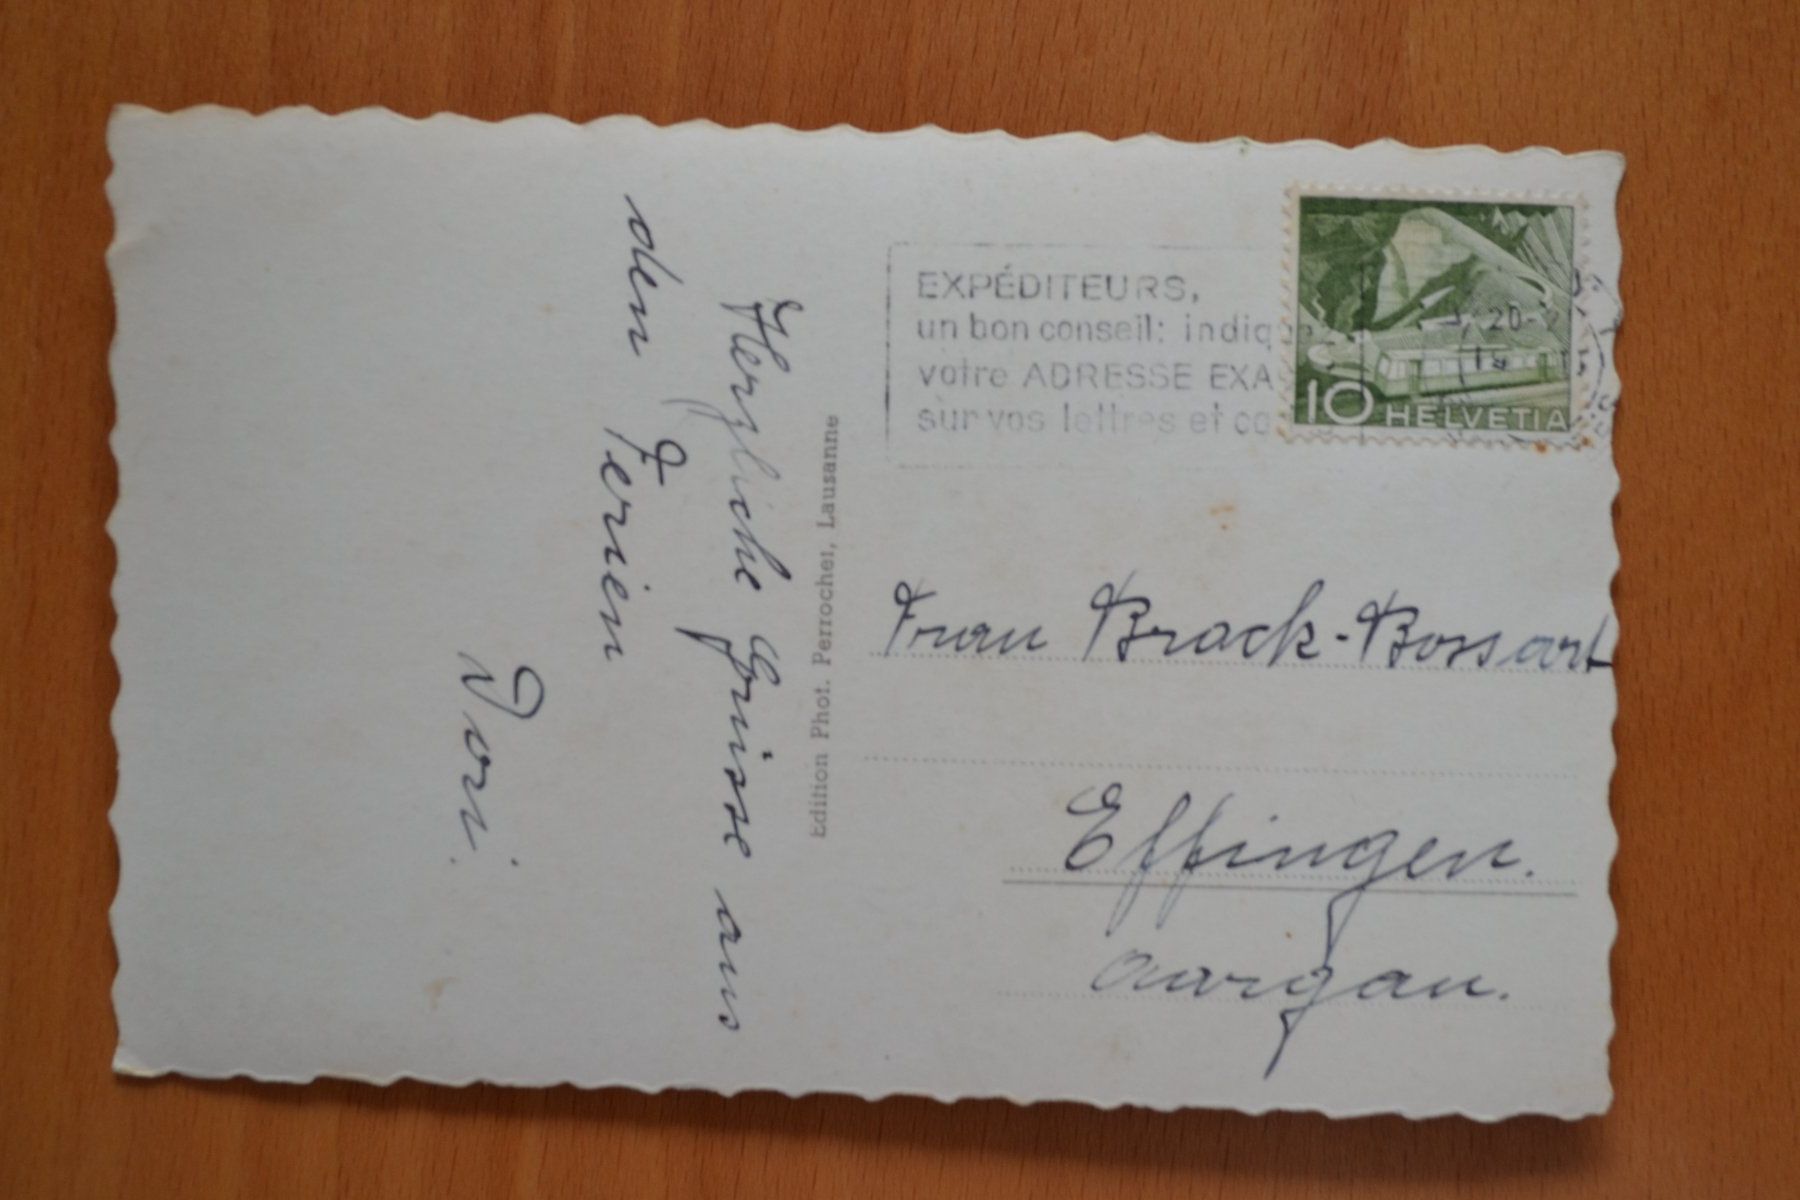 Herzliche Grüsse aus
den Ferien
Dori.
Edition Phot. Perrochet, Lausanne
EXPÉDITEURS,
un bon conseil: indiq
votre ADRESSE EXA
sur vos lettres et ca
10 HELVETIA
20-
Frau Brack-Bossart
Effingen.
Aargau.